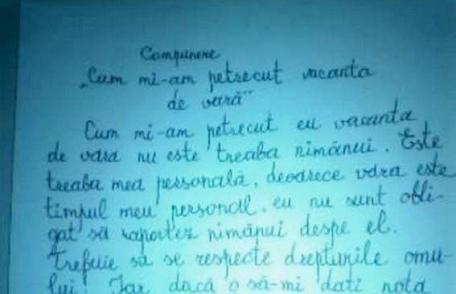 Compunere
„Cum mi-am petrecut vacanta
de vară"
Cum mi-am petrecut eu vacanta
de vara nu este treaba nimănui. Este
treaba mea personală, deoarece vara este
timpul meu personal, eu nu sunt obli-
gat să raportez nimănui despe el.
Trebuie să se respecte drepturile omu-
lui. Iar dacă o să-mi dati nota